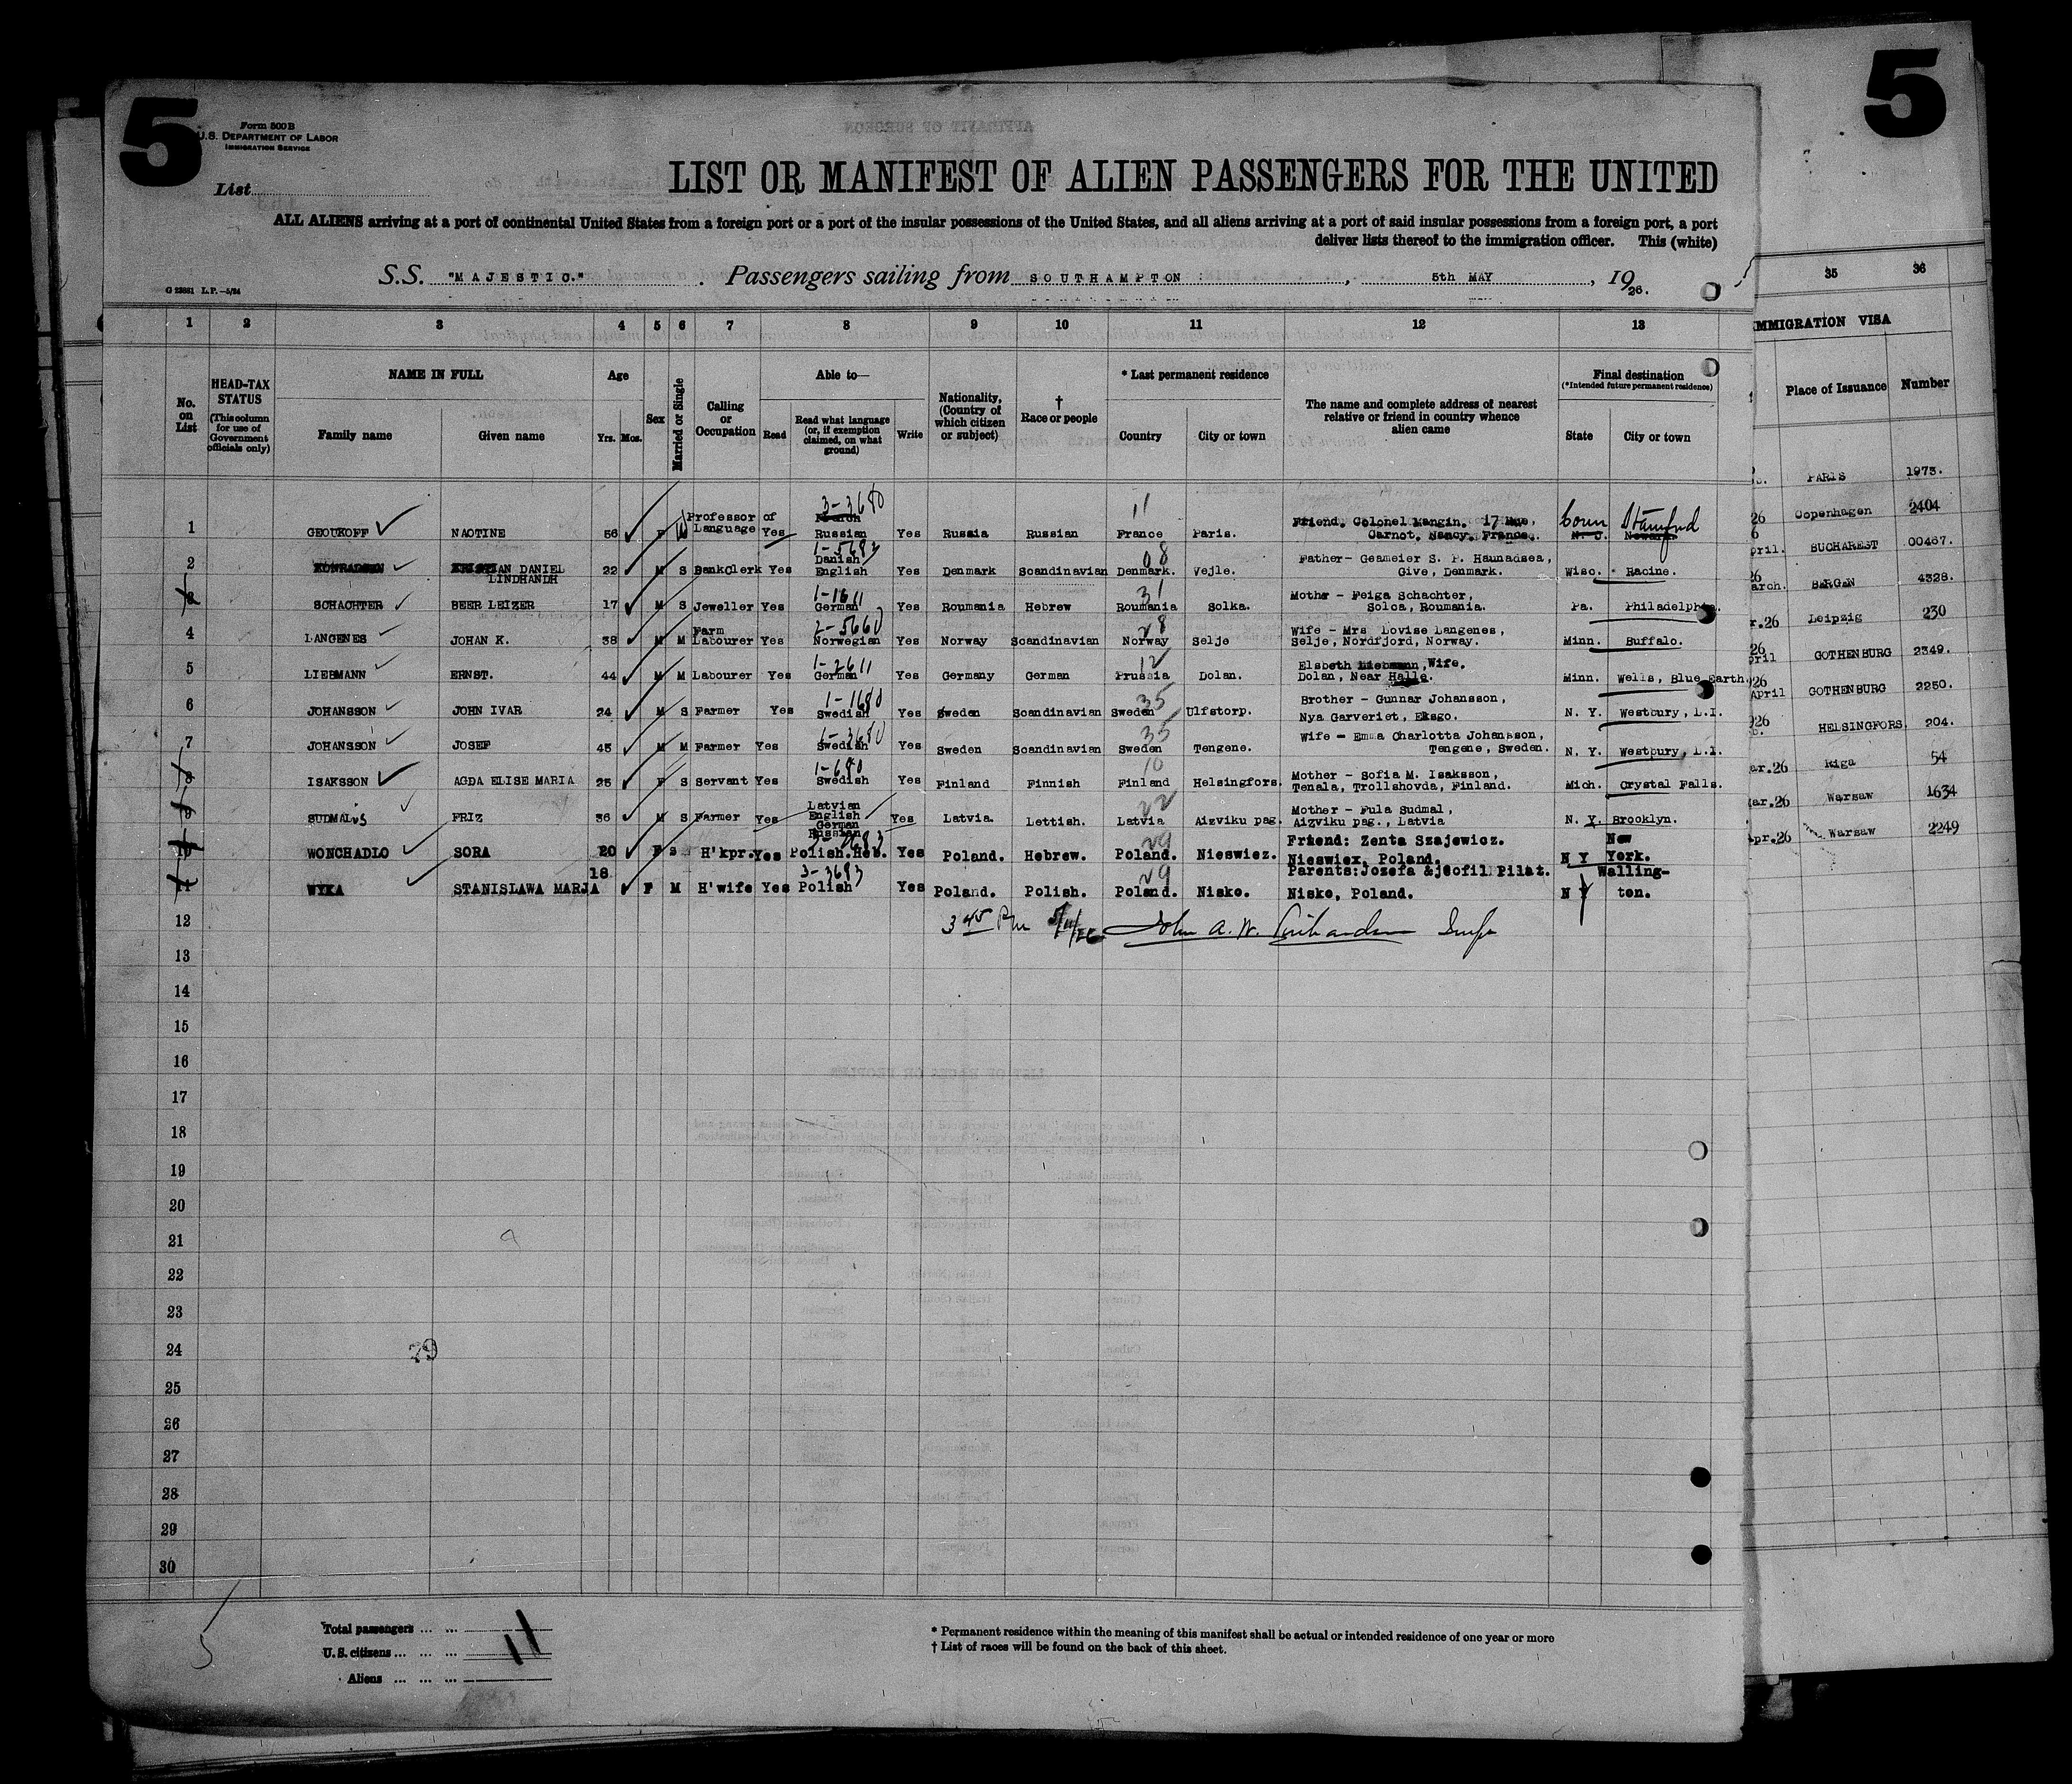 5
5
Form 500 B
U.S. DEPARTMENT OF LABOR
IMMIGRATION SERVICE
List
LIST OR MANIFEST OF ALIEN PASSENGERS FOR THE UNITED
ALL ALIENS arriving at a port of continental United States from a foreign port or a port of the insular possessions of the United States, and all aliens arriving at a port of said insular possessions from a foreign port, a port
deliver lists thereof to the immigration officer. This (white)
S.S. "MAJESTIC." Passengers sailing from SOUTHAMPTON, 5th MAY, 1926.
G 23881 L.P.—5/24
1 2 3 4 5 6 7 8 9 10 11 12 13
35 36
IMMIGRATION VISA
Place of Issuance Number
No. on List
HEAD-TAX STATUS
(This column for use of Government officials only)
NAME IN FULL
Family name Given name
Age
Yrs. Mos.
Sex
Married or Single
Calling or Occupation
Able to—
Read
Read what language (or, if exemption claimed, on what ground)
Write
Nationality, (Country of which citizen or subject)
† Race or people
* Last permanent residence
Country City or town
The name and complete address of nearest relative or friend in country whence alien came
Final destination
(*Intended future permanent residence)
State City or town
1 GEOUKOFF NAOTINE 56 F Professor of Language Yes 3-3680 French Russian Yes Russia Russian 11 France Paris. Friend. Colonel Mangin. 17 Rue, Carnot. Nancy. France. Conn Stamford N. J. Newark. PARIS 1973.
2 KONRADSEN KRISTIAN DANIEL LINDHANDH 22 M S BankClerk Yes 1-5683 Danish English Yes Denmark Scandinavian 08 Denmark. Vejle. Father- Geameier S. P. Haunadsea, Give, Denmark. Wisc. Racine. Copenhagen 2404
3 SCHACHTER BEER LEIZER 17 M S Jeweller Yes 1-1611 German Yes Roumania Hebrew 31 Roumania Solka. Mothr - Feiga Schachter, Solca, Roumania. Pa. Philadelphia. BUCHAREST 00467.
4 LANGENES JOHAN K. 38 M M Farm Labourer Yes 2-5660 Norwegian Yes Norway Scandinavian 28 Norway Selje Wife - Mrs Lovise Langenes, Selje, Nordfjord, Norway. Minn. Buffalo. BERGEN 4328.
5 LIEBMANN ERNST. 44 M M Labourer Yes 1-2611 German Yes Germany German 12 Prussia Dolan. Elsbeth Liebmann, Wife. Dolan, Near Halle. Minn. Wells, Blue Earth. Leipzig 230
6 JOHANSSON JOHN IVAR 24 M S Farmer Yes 1-1680 Swedish Yes Sweden Scandinavian 35 Sweden Ulfstorp. Brother - Gunnar Johansson, Nya Garveriet, Eksgo. N. Y. Westbury, L.I. GOTHENBURG 2349.
7 JOHANSSON JOSEF 45 M M Farmer Yes 1-3680 Swedish Yes Sweden Scandinavian 35 Sweden Tengene. Wife - Emma Charlotta Johansson, Tengene, Sweden. N. Y. Westbury, L.I. GOTHENBURG 2250.
8 ISAKSSON AGDA ELISE MARIA 25 F S Servant Yes 1-680 Swedish Yes Finland Finnish 10 Finland Helsingfors. Mother - Sofia M. Isaksson, Tenala, Trollshovda, Finland. Mich. Crystal Falls. HELSINGFORS. 204.
9 SUDMALIS FRIZ 36 M S Farmer Yes Latvian English German Russian Yes Latvia. Lettish. 22 Latvia Aizviku pag. Mother - Fula Sudmal, Aizviku pag., Latvia N. Y. Brooklyn. Riga 54
10 WONCHADLO SORA 20 F S H'kpr. Yes Polish.Heb. Yes Poland. Hebrew. 29 Poland. Nieswiez. Friend: Zenta Szajewicz. Nieswiex, Poland. N Y New York. Warsaw 1634
11 WYKA STANISLAWA MARJA 18 F M H'wife Yes 3-3683 Polish Yes Poland. Polish. 29 Poland. Nisko. Parents: Jozefa & jeofil Pilat. Nisko, Poland. N Y Wallington. Warsaw 2249
12 3 45 Pm 5/11/26 John A. W. Richardson Insp
13
14
15
16
17
18
19
20
21
22
23
24 29
25
26
27
28
29
30
5
Total passengers ... ...
U. S. citizens ... ... ... 11
Aliens ... ... ...
* Permanent residence within the meaning of this manifest shall be actual or intended residence of one year or more
† List of races will be found on the back of this sheet.